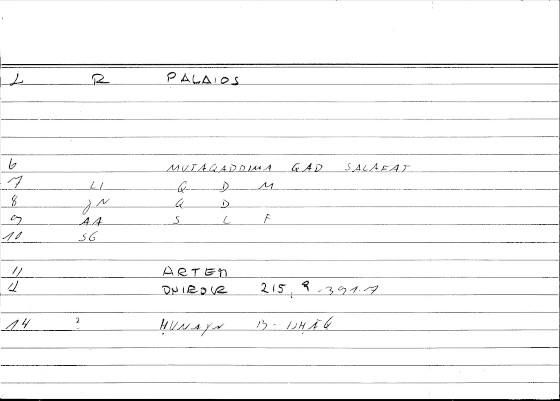 1 R PALAIOS
6 MUTAQADDIMA QAD SALAFAT
7 LI Q D M
8 JN Q D
9 AA S L F
10 SG
11 ARTEM
12 ONIROCR 215, 9 -391.7
14 ? ḤUNAYN B-ISḤĀQ